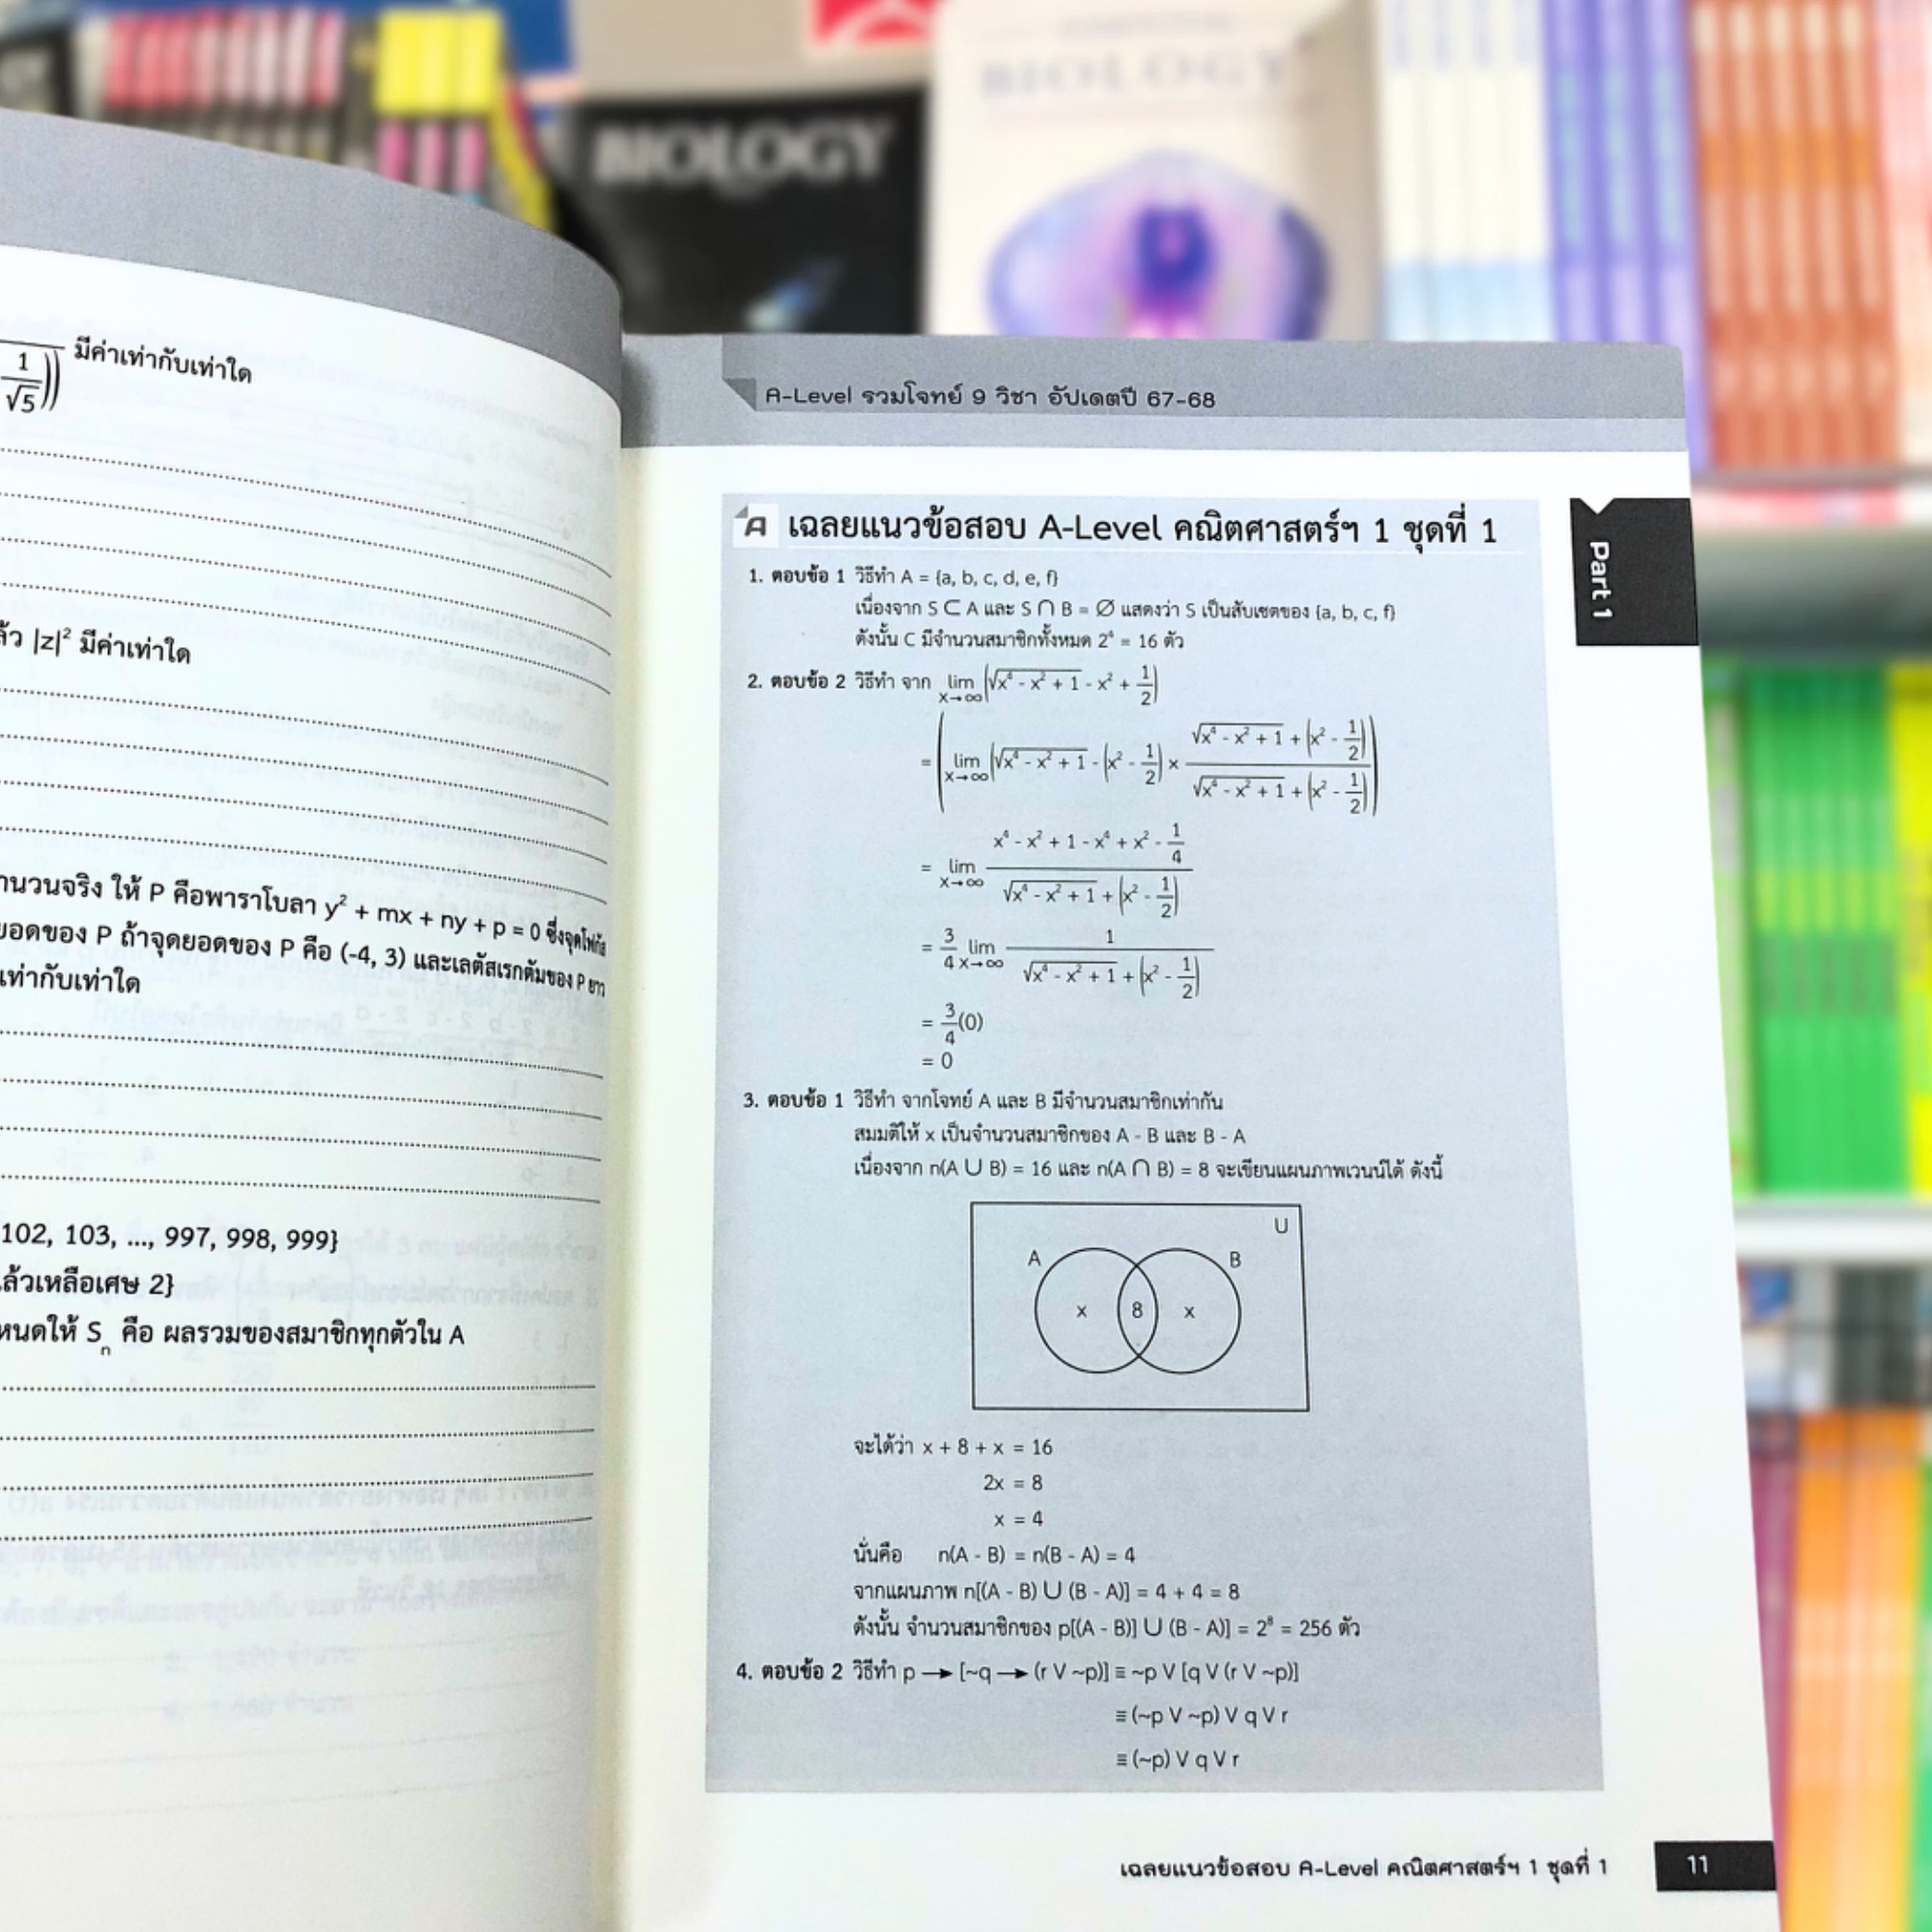 BIOLOGY
BIOLOGY
1/√5)) มีค่าเท่ากับเท่าใด
|z|² มีค่าเท่าใด
ให้ P คือพาราโบลา y² + mx + ny + p = 0 ซึ่งจุดโฟกัส
ของ P ถ้าจุดยอดของ P คือ (-4, 3) และเลตัสเรกตัมของ P ยาว
เท่ากับเท่าใด
102, 103, ..., 997, 998, 999}
เหลือเศษ 2}
ให้ Sₙ คือ ผลรวมของสมาชิกทุกตัวใน A
A-Level รวมโจทย์ 9 วิชา อัปเดตปี 67-68
Part 1
A เฉลยแนวข้อสอบ A-Level คณิตศาสตร์ฯ 1 ชุดที่ 1
1. ตอบข้อ 1 วิธีทำ A = {a, b, c, d, e, f}
เนื่องจาก S ⊂ A และ S ∩ B = ∅ แสดงว่า S เป็นสับเซตของ {a, b, c, f}
ดังนั้น C มีจำนวนสมาชิกทั้งหมด 2⁴ = 16 ตัว
2. ตอบข้อ 2 วิธีทำ จาก lim x→∞ (√(x⁴ - x² + 1) - x² + 1/2)
= (lim x→∞ (√(x⁴ - x² + 1) - (x² - 1/2) × (√(x⁴ - x² + 1) + (x² - 1/2))/(√(x⁴ - x² + 1) + (x² - 1/2)))
= lim x→∞ (x⁴ - x² + 1 - x⁴ + x² - 1/4)/(√(x⁴ - x² + 1) + (x² - 1/2))
= 3/4 lim x→∞ 1/(√(x⁴ - x² + 1) + (x² - 1/2))
= 3/4(0)
= 0
3. ตอบข้อ 1 วิธีทำ จากโจทย์ A และ B มีจำนวนสมาชิกเท่ากัน
สมมติให้ x เป็นจำนวนสมาชิกของ A - B และ B - A
เนื่องจาก n(A ∪ B) = 16 และ n(A ∩ B) = 8 จะเขียนแผนภาพเวนน์ได้ ดังนี้
U
A B
x 8 x
จะได้ว่า x + 8 + x = 16
2x = 8
x = 4
นั่นคือ n(A - B) = n(B - A) = 4
จากแผนภาพ n[(A - B) ∪ (B - A)] = 4 + 4 = 8
ดังนั้น จำนวนสมาชิกของ p[(A - B)] ∪ (B - A)] = 2⁸ = 256 ตัว
4. ตอบข้อ 2 วิธีทำ p → [~q → (r V ~p)] ≡ ~p V [q V (r V ~p)]
≡ (~p V ~p) V q V r
≡ (~p) V q V r
เฉลยแนวข้อสอบ A-Level คณิตศาสตร์ฯ 1 ชุดที่ 1 11